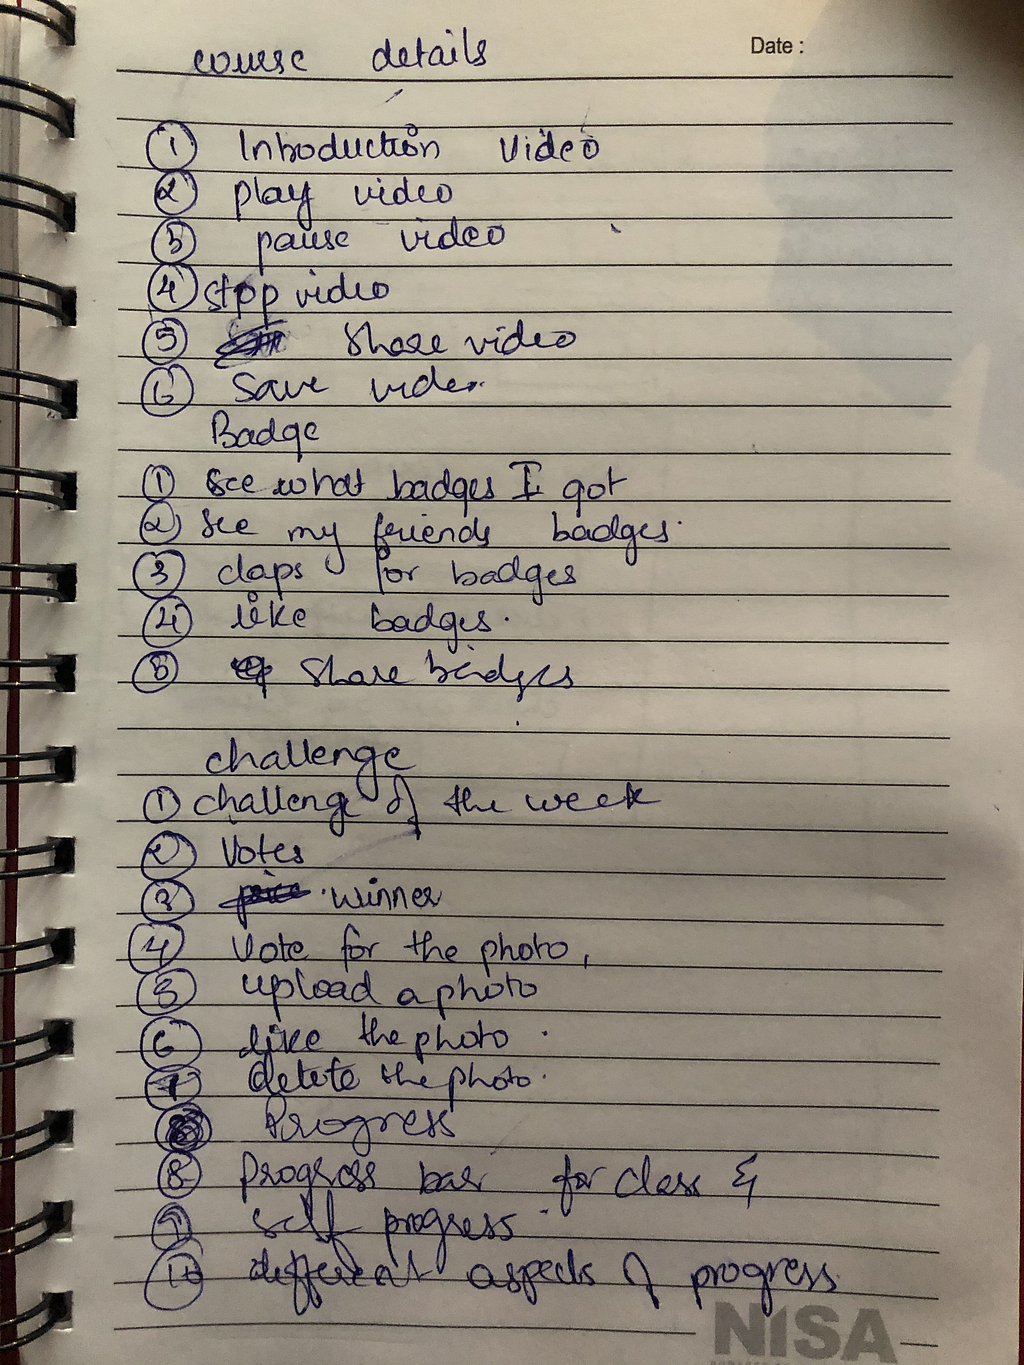 course details
Date :
1 Introduction Video
2 play video
3 pause video
4 stop video
5 Share video
6 Save video
Badge
1 see what badges I got
2 see my friends badges.
3 claps for badges
4 like badges.
5 Share badges
challenge
1 challenge of the week
2 Votes
3 winner
4 Vote for the photo,
5 upload a photo
6 like the photo.
7 delete the photo.
Progress
8 progress bar for class &
9 self progress.
10 different aspects of progress.
NISA